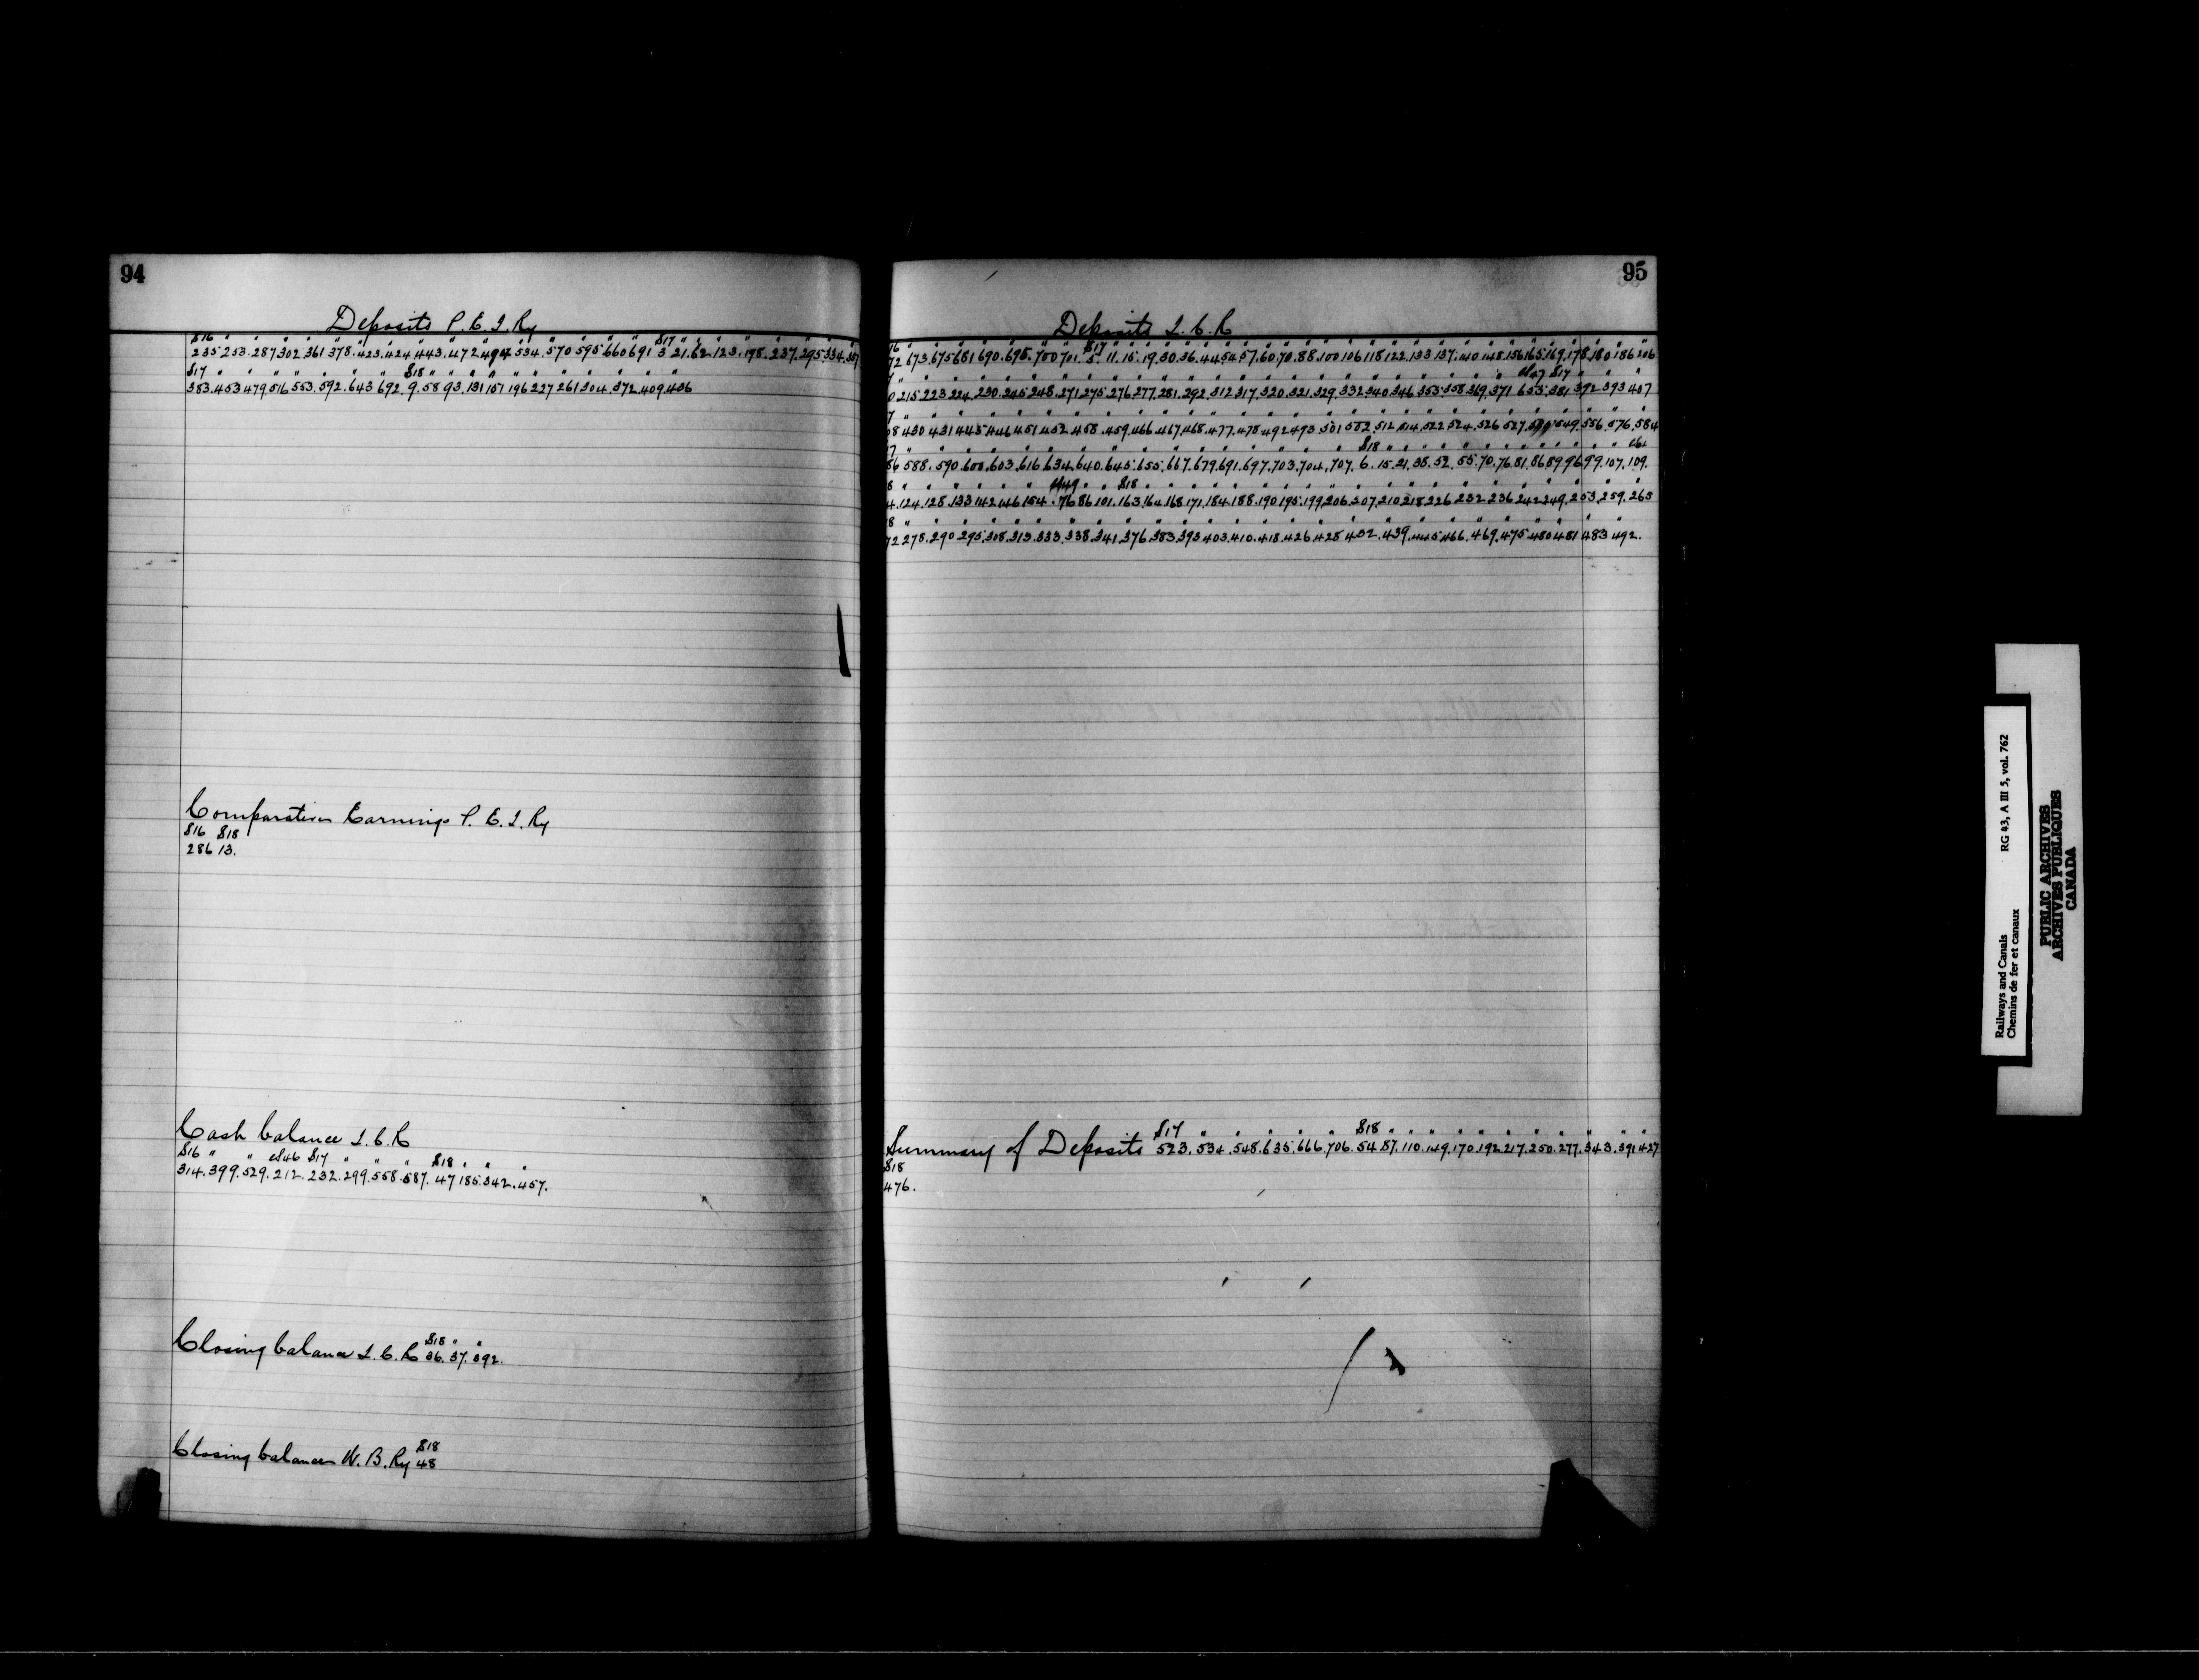 94
Deposits P. E. I. Ry
S16 " " " " " " " " " " " " " " " S17 " " " " " " " "
235. 253. 287. 302. 361. 378. 423. 424. 443. 472. 494. 534. 570. 595. 660. 691. 3. 21. 62. 123. 198. 237. 295. 334. 357
S17 " " " " " " " S18 " " " " " " " " " "
383. 453. 479. 516. 553. 592. 643. 692. 9. 58. 93. 131. 167. 196. 227. 261. 304. 372. 409. 436
Comparative Earnings P. E. I. Ry
S16 S18
286 13.
Cash balance I. C. R
S16 " " S17 " " " S18 " " "
314. 399. 529. 212. 232. 299. 558. 587. 47. 185. 342. 457.
Closing balance I. C. R S18 " "
36. 37. 392.
Closing balances W. B. Ry S18
48
95
Deposits I. C. R
16 " " " " " " " S17 " " "
72. 673. 675. 681. 690. 695. 700. 701. 5. 11. 15. 19. 30. 36. 44. 54. 57. 60. 70. 88. 100. 106. 118. 122. 133. 137. 140. 148. 156. 165. 169. 178. 180. 186. 206
S17 "
215. 223. 224. 230. 245. 248. 271. 275. 276. 277. 281. 292. 312. 317. 320. 321. 329. 332. 340. 346. 353. 358. 369. 371. 653. 381. 392. 393. 407
430. 431. 445. 446. 451. 452. 458. 459. 466. 467. 468. 477. 478. 492. 493. 501. 502. 512. 514. 522. 524. 526. 527. 549. 556. 576. 584
S18 "
86. 588. 590. 600. 603. 616. 634. 640. 645. 655. 667. 679. 691. 697. 703. 704. 707. 6. 15. 21. 38. 52. 55. 70. 76. 81. 86. 89. 96. 99. 107. 109.
S18 "
124. 128. 133. 142. 146. 154. 76. 86. 101. 163. 164. 168. 171. 184. 188. 190. 195. 199. 206. 207. 210. 218. 226. 232. 236. 242. 249. 253. 259. 265
72. 278. 290. 295. 308. 313. 333. 338. 341. 376. 383. 393. 403. 410. 418. 426. 428. 432. 439. 445. 466. 469. 475. 480. 481. 483. 492.
S17 " " " " " S18 " " " " " " " " " " "
Summary of Deposits 523. 534. 548. 635. 666. 706. 54. 87. 110. 149. 170. 192. 217. 250. 277. 343. 391. 427
S18
476.
Railways and Canals RG 43, A III 5, vol. 762
Chemins de fer et canaux
PUBLIC ARCHIVES
ARCHIVES PUBLIQUES
CANADA